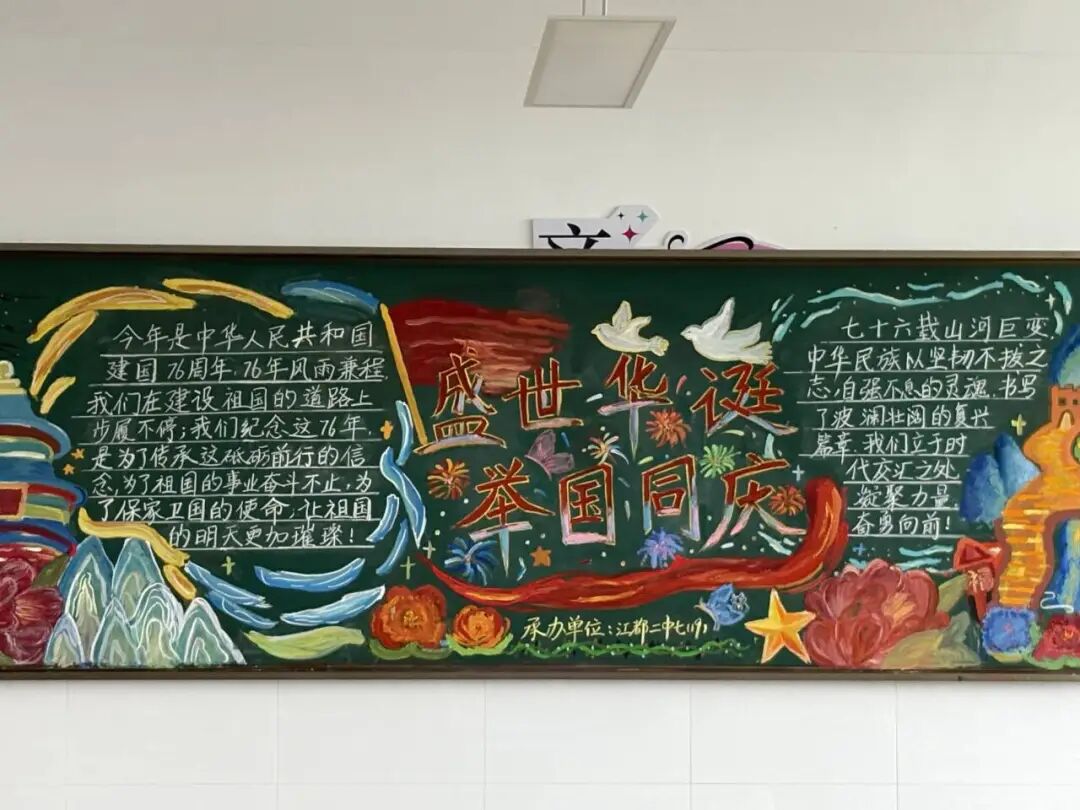 文
今年是中华人民共和国
建国76周年,76年风雨兼程,
我们在建设祖国的道路上
步履不停;我们纪念这76年
是为了传承这砥砺前行的信
念,为了祖国的事业奋斗不止,为
了保家卫国的使命,让祖国
的明天更加璀璨!
盛世华诞
举国同庆
承办单位:江都二中七(19)
七十六载山河巨变
中华民族以坚韧不拔之
志,自强不息的灵魂,书写
了波澜壮阔的复兴
篇章,我们立于时
代交汇之处
凝聚力量
奋勇向前!